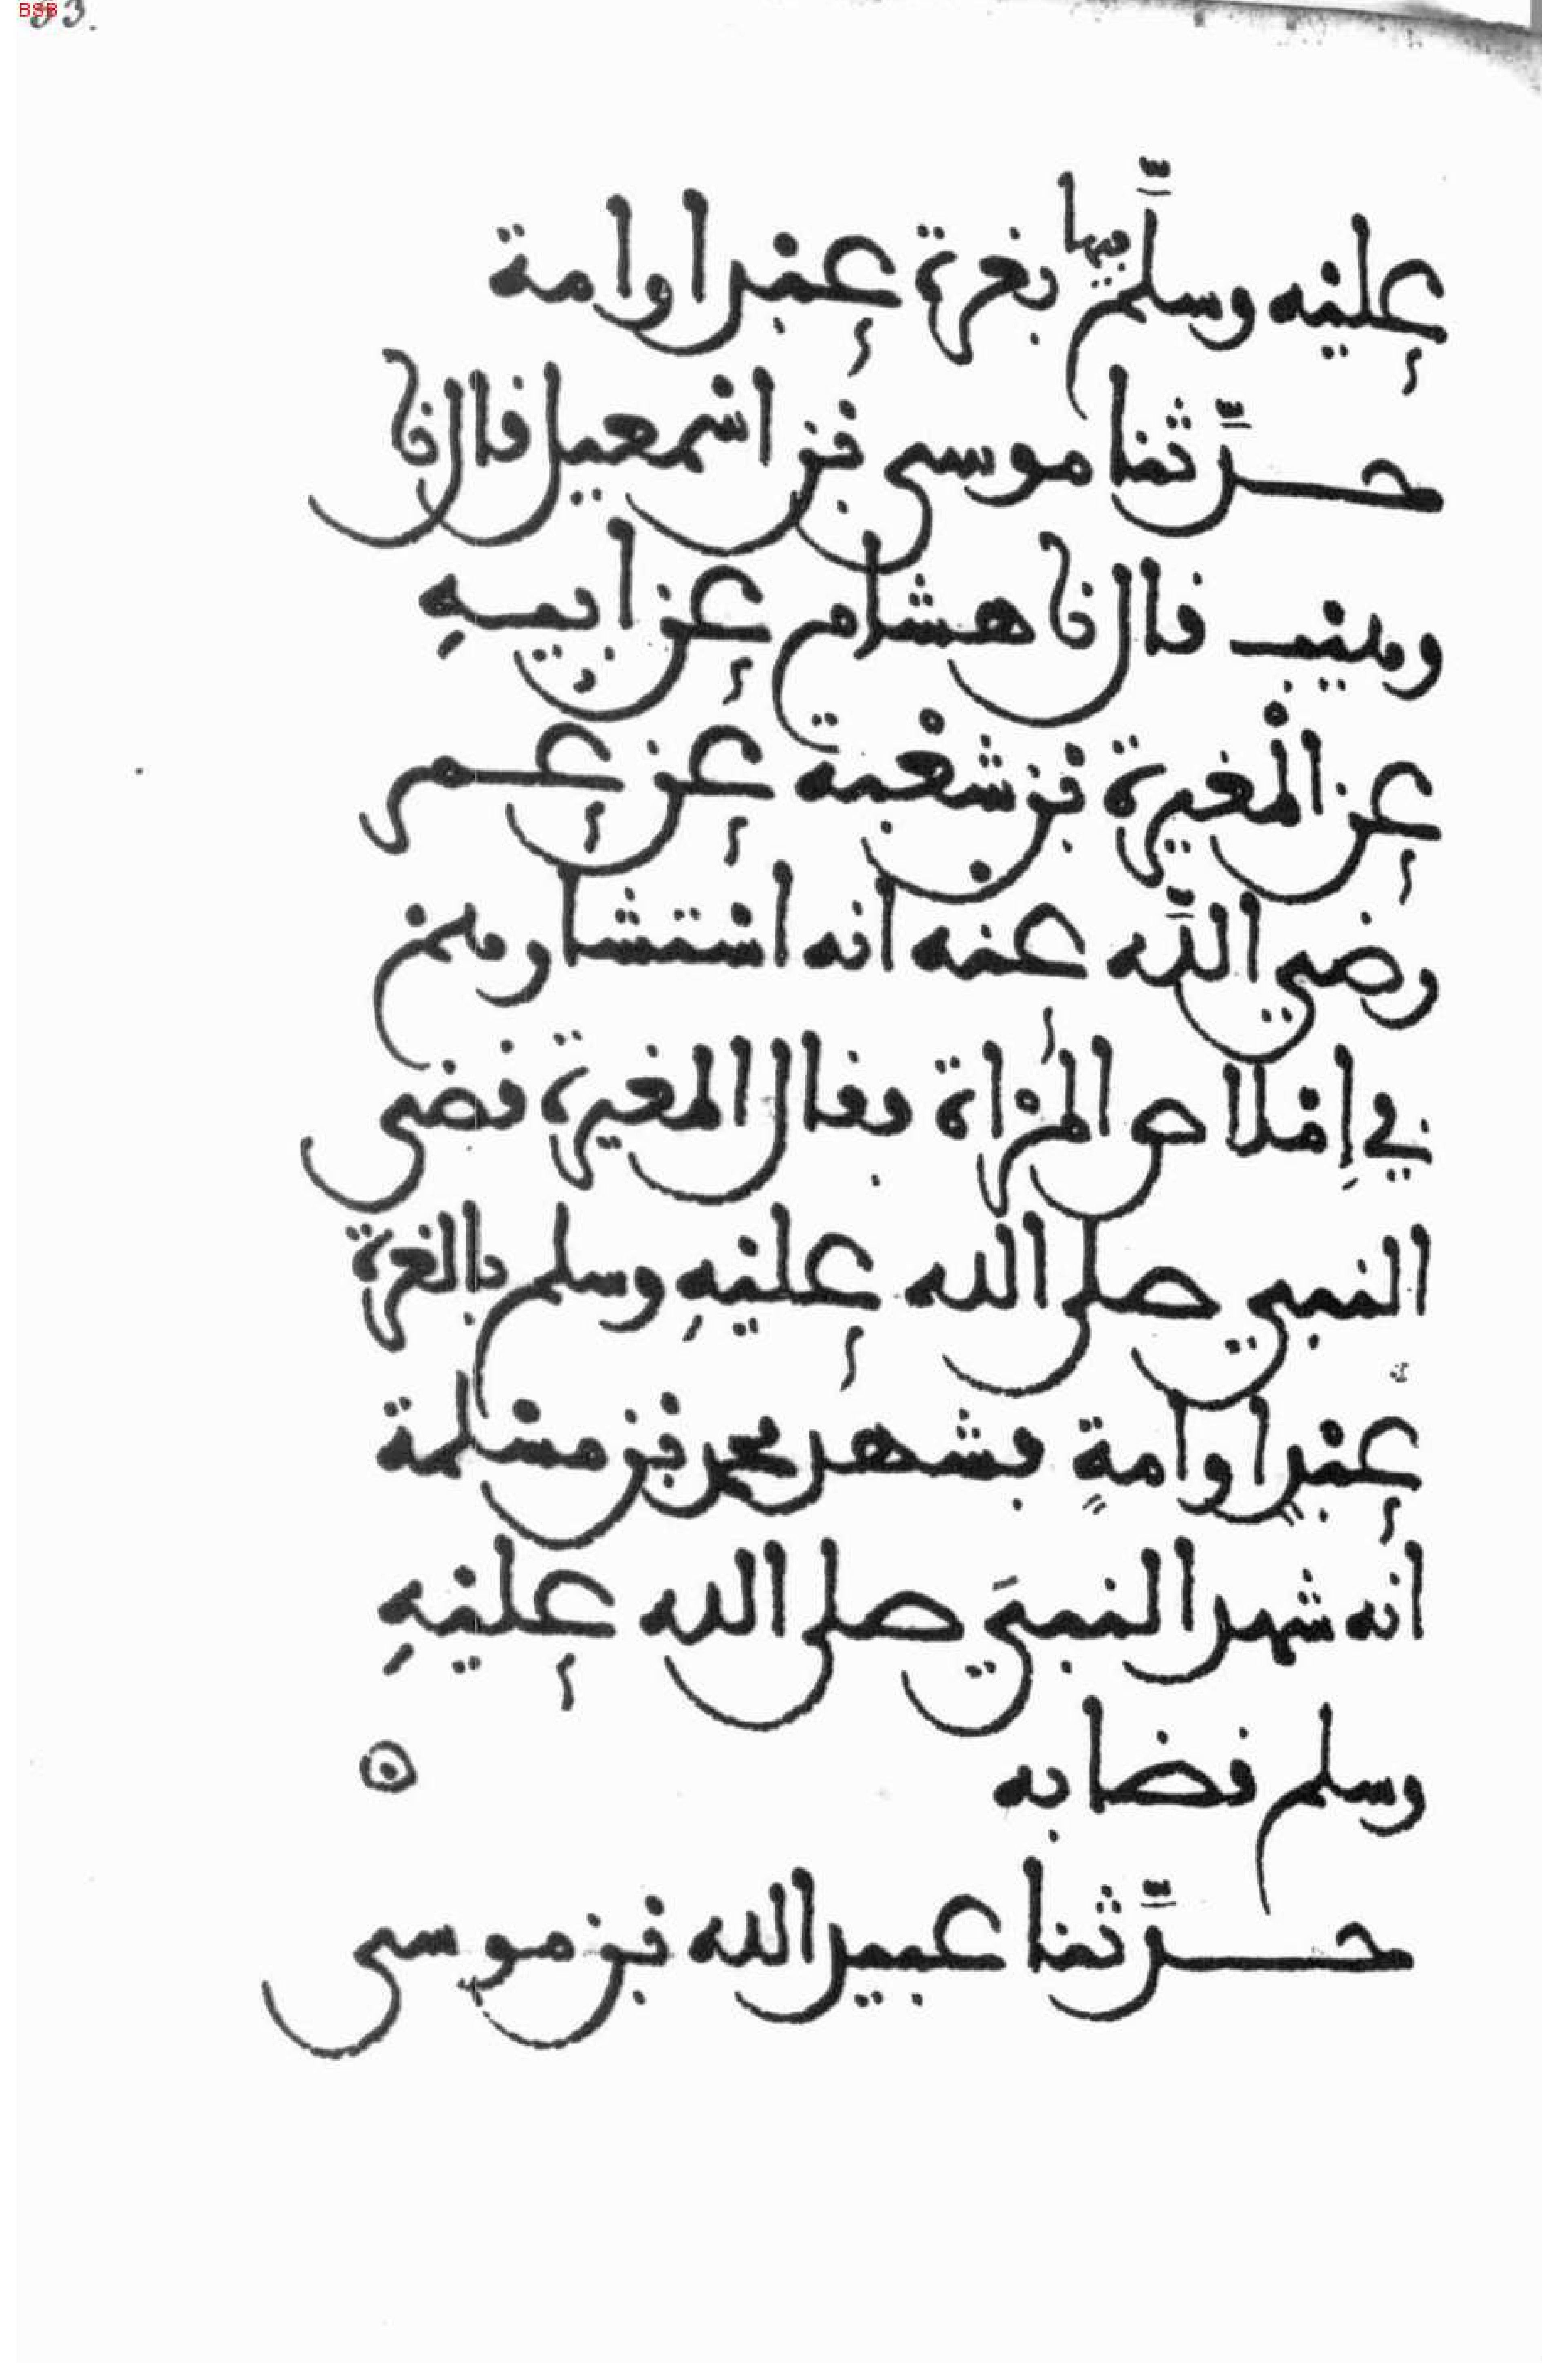 BSB
53.
عليه وسلم فيها بغرة عبد او امة
حدثنا موسى بن اسمعيل قال نا
وهيب قال نا هشام عن ابيه
عن المغيرة بن شعبة عن عمر
رضي الله عنه انه استشارهم
في إملاص المرأة فقال المغيرة قضى
النبي صلى الله عليه وسلم بالغرة
عبدٍ او امةٍ فشهد محمد بن مسلمة
انه شهد النبي صلى الله عليه
وسلم قضا به
حدثنا عبيد الله بن موسى